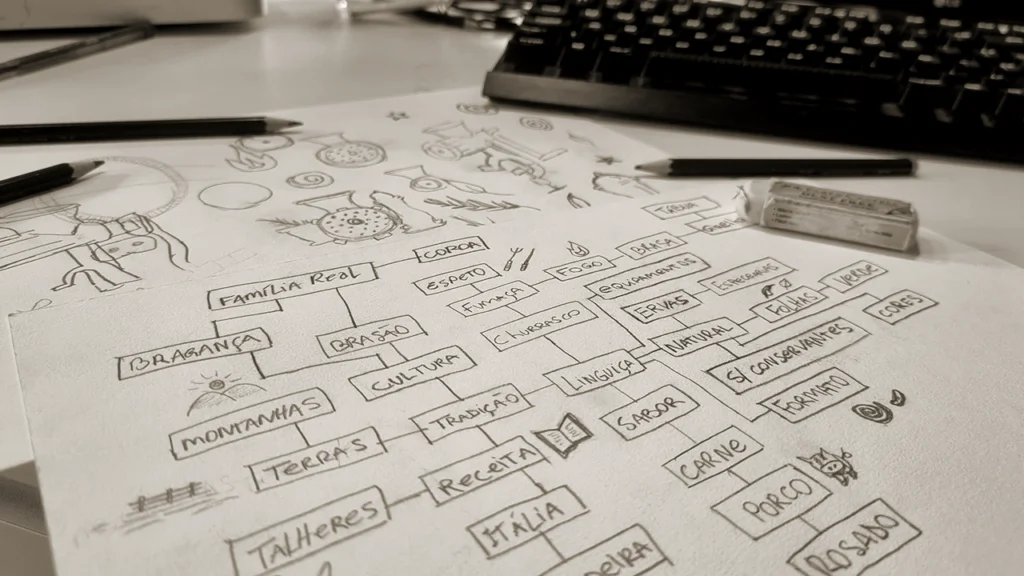 COROA
FAMÍLIA REAL
ESPETO
FOGO
FUMAÇA
EQUIPAMENTOS
ERVAS
VERDE
FOLHAS
CORES
BRAGANÇA
BRASÃO
CHURRASCO
NATURAL
S/ CONSERVANTES
CULTURA
LINGUIÇA
FORMATO
MONTANHAS
TRADIÇÃO
SABOR
TERRAS
RECEITA
CARNE
TALHERES
ITÁLIA
PORCO
ROSADO